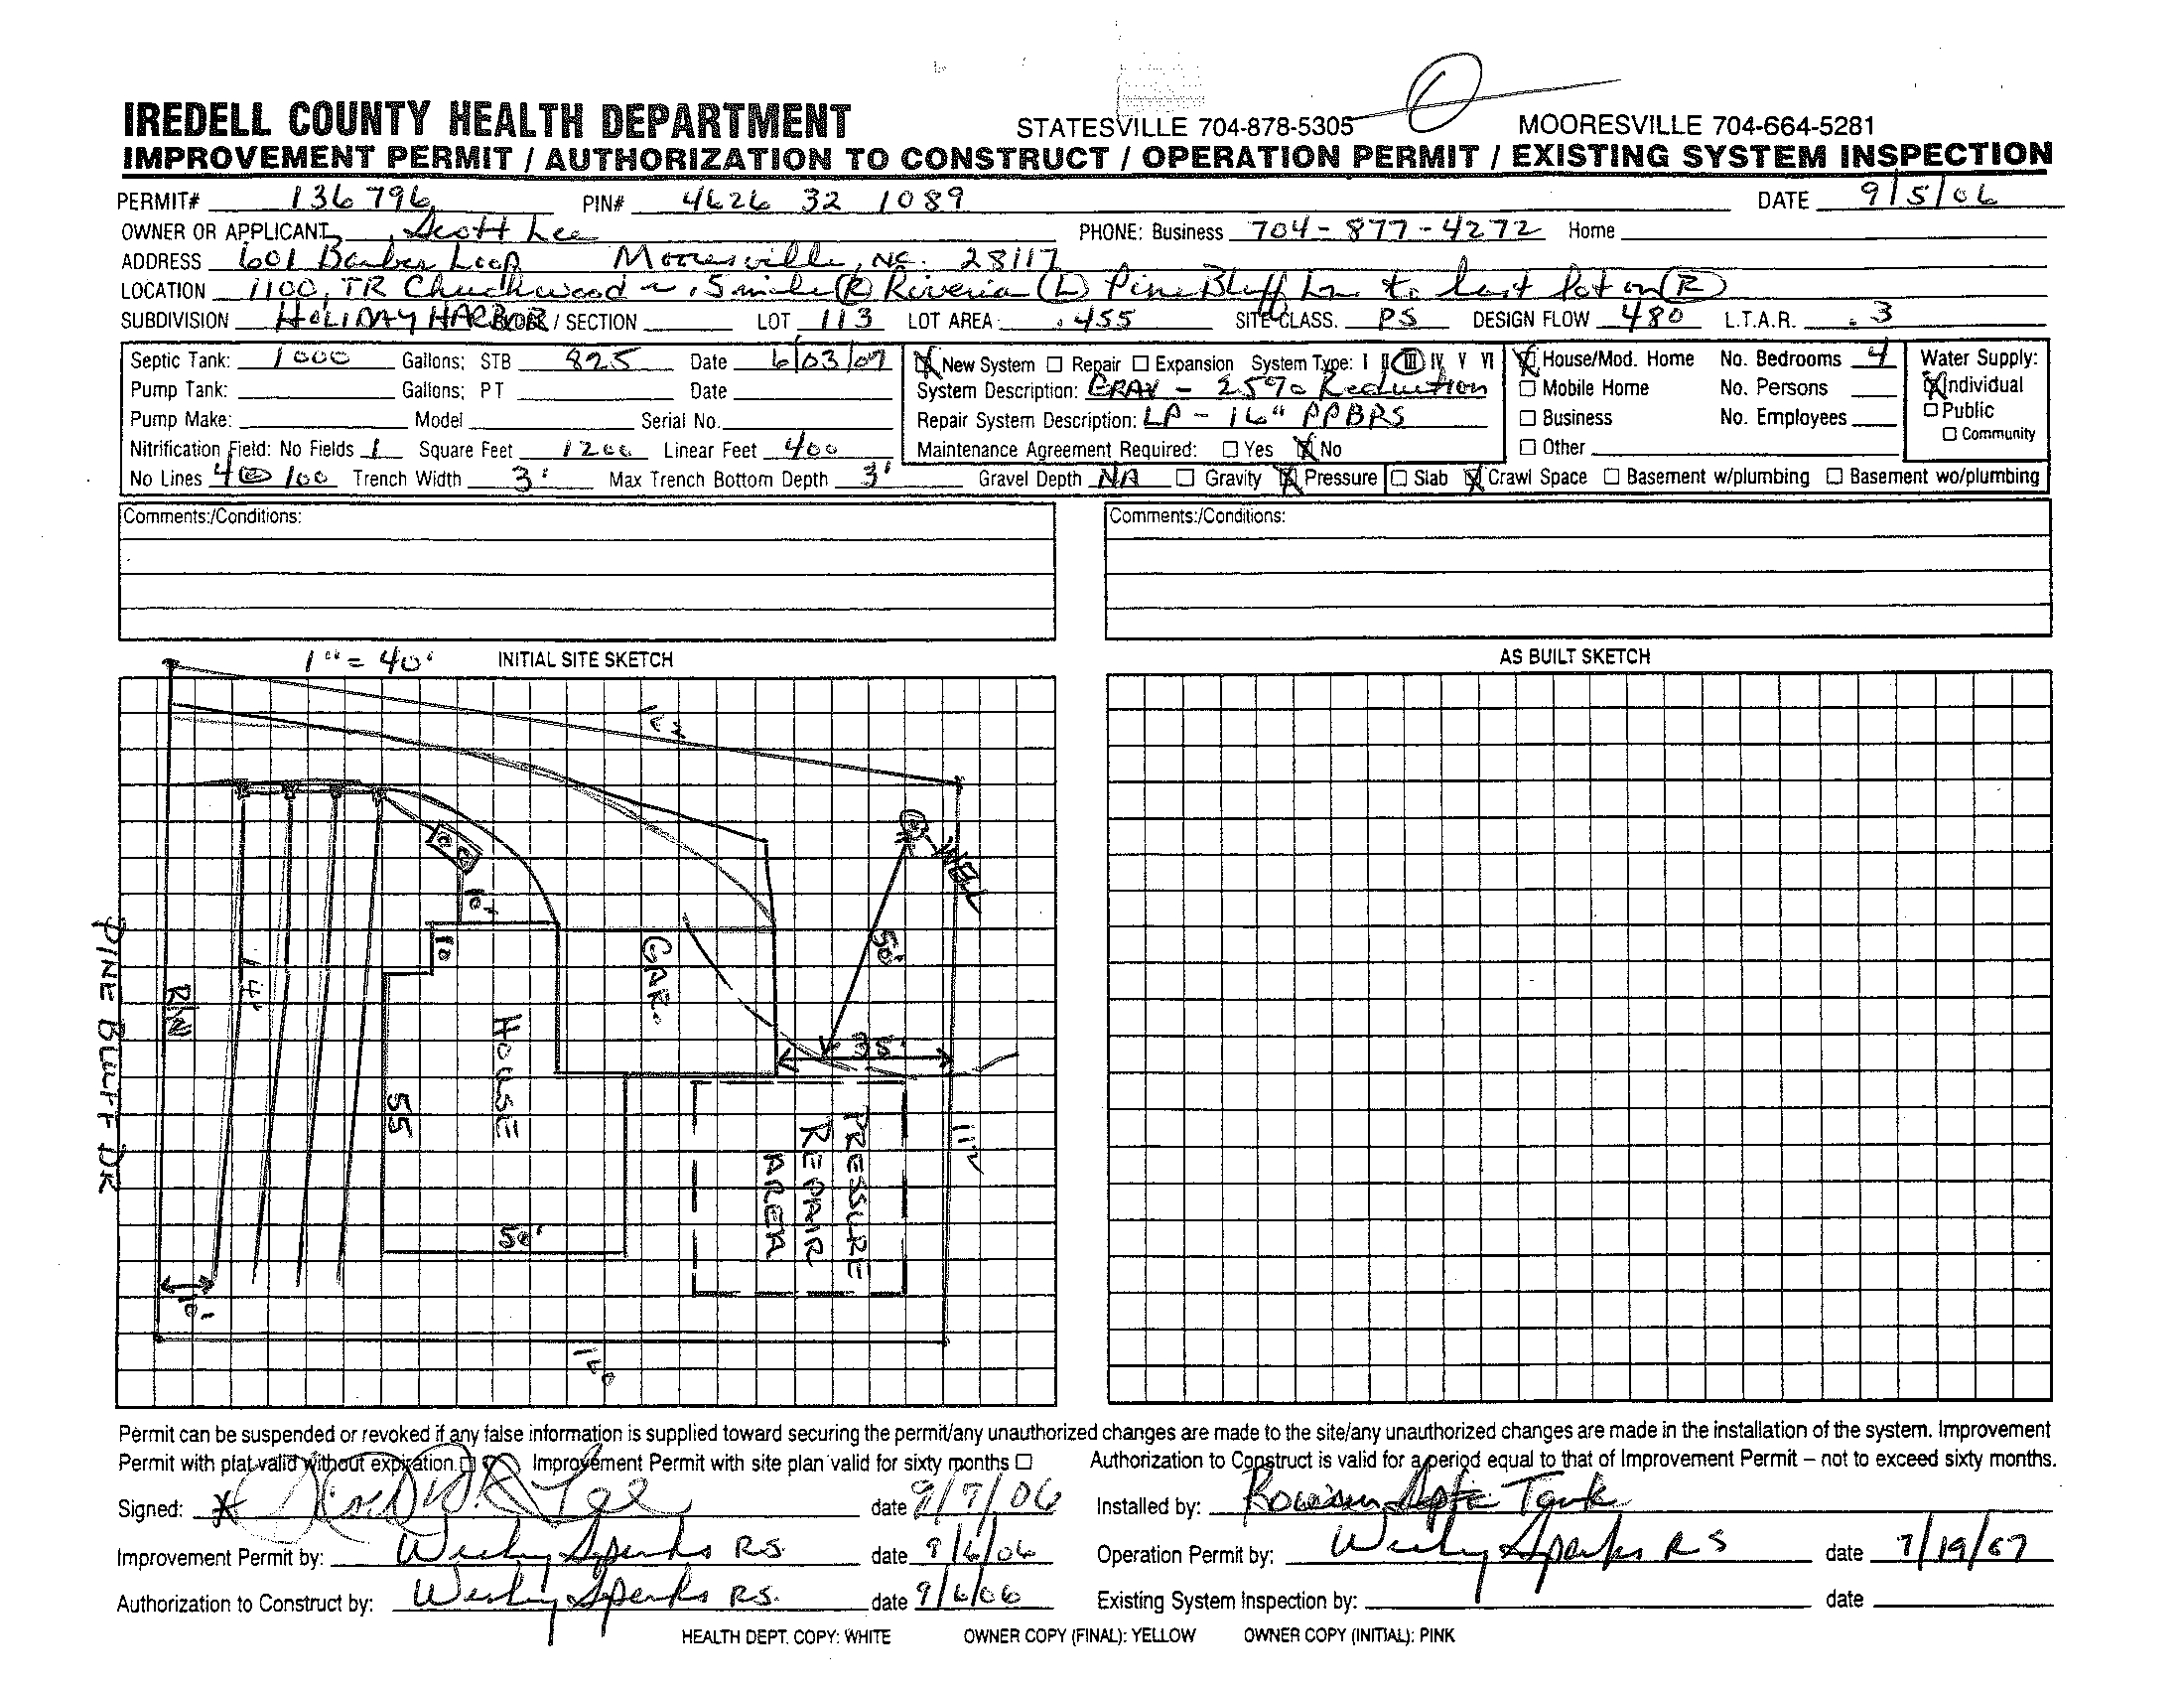 IREDELL COUNTY HEALTH DEPARTMENT STATESVILLE 704-878-5305 MOORESVILLE 704-664-5281
IMPROVEMENT PERMIT / AUTHORIZATION TO CONSTRUCT / OPERATION PERMIT / EXISTING SYSTEM INSPECTION
PERMIT# 136796 PIN# 4626 32 1089 DATE 9/5/06
OWNER OR APPLICANT Scott Lee PHONE: Business 704-877-4272 Home
ADDRESS 601 Barber Loop Mooresville, NC. 28117
LOCATION 1100, TR Chuckwood ~ .5 mile (R) Riveria (L) Pine Bluff Ln. to last lot on (R)
SUBDIVISION HOLIDAY HARBOR BLOCK / SECTION LOT 113 LOT AREA .455 SITE CLASS. PS DESIGN FLOW 480 L.T.A.R. .3
Septic Tank: 1000 Gallons; STB 825 Date 6/03/07 New System Repair Expansion System Type: I II III IV V VI House/Mod. Home No. Bedrooms 4 Water Supply:
Pump Tank: Gallons; PT Date System Description: GRAV - 25% Reduction Mobile Home No. Persons Individual
Pump Make: Model Serial No. Repair System Description: LP - 16" PPBRS Business No. Employees Public
Nitrification Field: No Fields 1 Square Feet 1200 Linear Feet 400 Maintenance Agreement Required: Yes No Other Community
No Lines 4 @ 100 Trench Width 3' Max Trench Bottom Depth 3' Gravel Depth NA Gravity Pressure Slab Crawl Space Basement w/plumbing Basement wo/plumbing
Comments:/Conditions: Comments:/Conditions:
1" = 40' INITIAL SITE SKETCH AS BUILT SKETCH
WELL
10+
10
GAR.
50'
4'
R/W
PINE BLUFF DR
HOUSE
35'
55
112
PRESSURE
REPAIR
AREA
50'
10'
Permit can be suspended or revoked if any false information is supplied toward securing the permit/any unauthorized changes are made to the site/any unauthorized changes are made in the installation of the system. Improvement
Permit with plat valid without expiration. Improvement Permit with site plan valid for sixty months Authorization to Construct is valid for a period equal to that of Improvement Permit – not to exceed sixty months.
Signed: * Lee date 9/7/06 Installed by: Septic Tank
Improvement Permit by: Wesley Sparks RS date 9/6/06 Operation Permit by: Wesley Sparks RS date 7/19/07
Authorization to Construct by: Wesley Sparks R.S. date 9/6/06 Existing System Inspection by: date
HEALTH DEPT. COPY: WHITE OWNER COPY (FINAL): YELLOW OWNER COPY (INITIAL): PINK